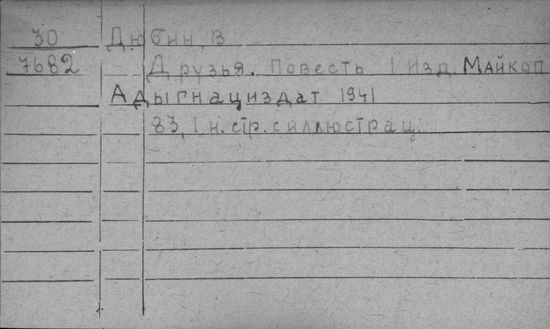 30 Дюбин, В
7682 Друзья. Повесть 1 Изд. Майкоп
Адыгнациздат 1941
83, 1 н. стр. с иллюстрац.